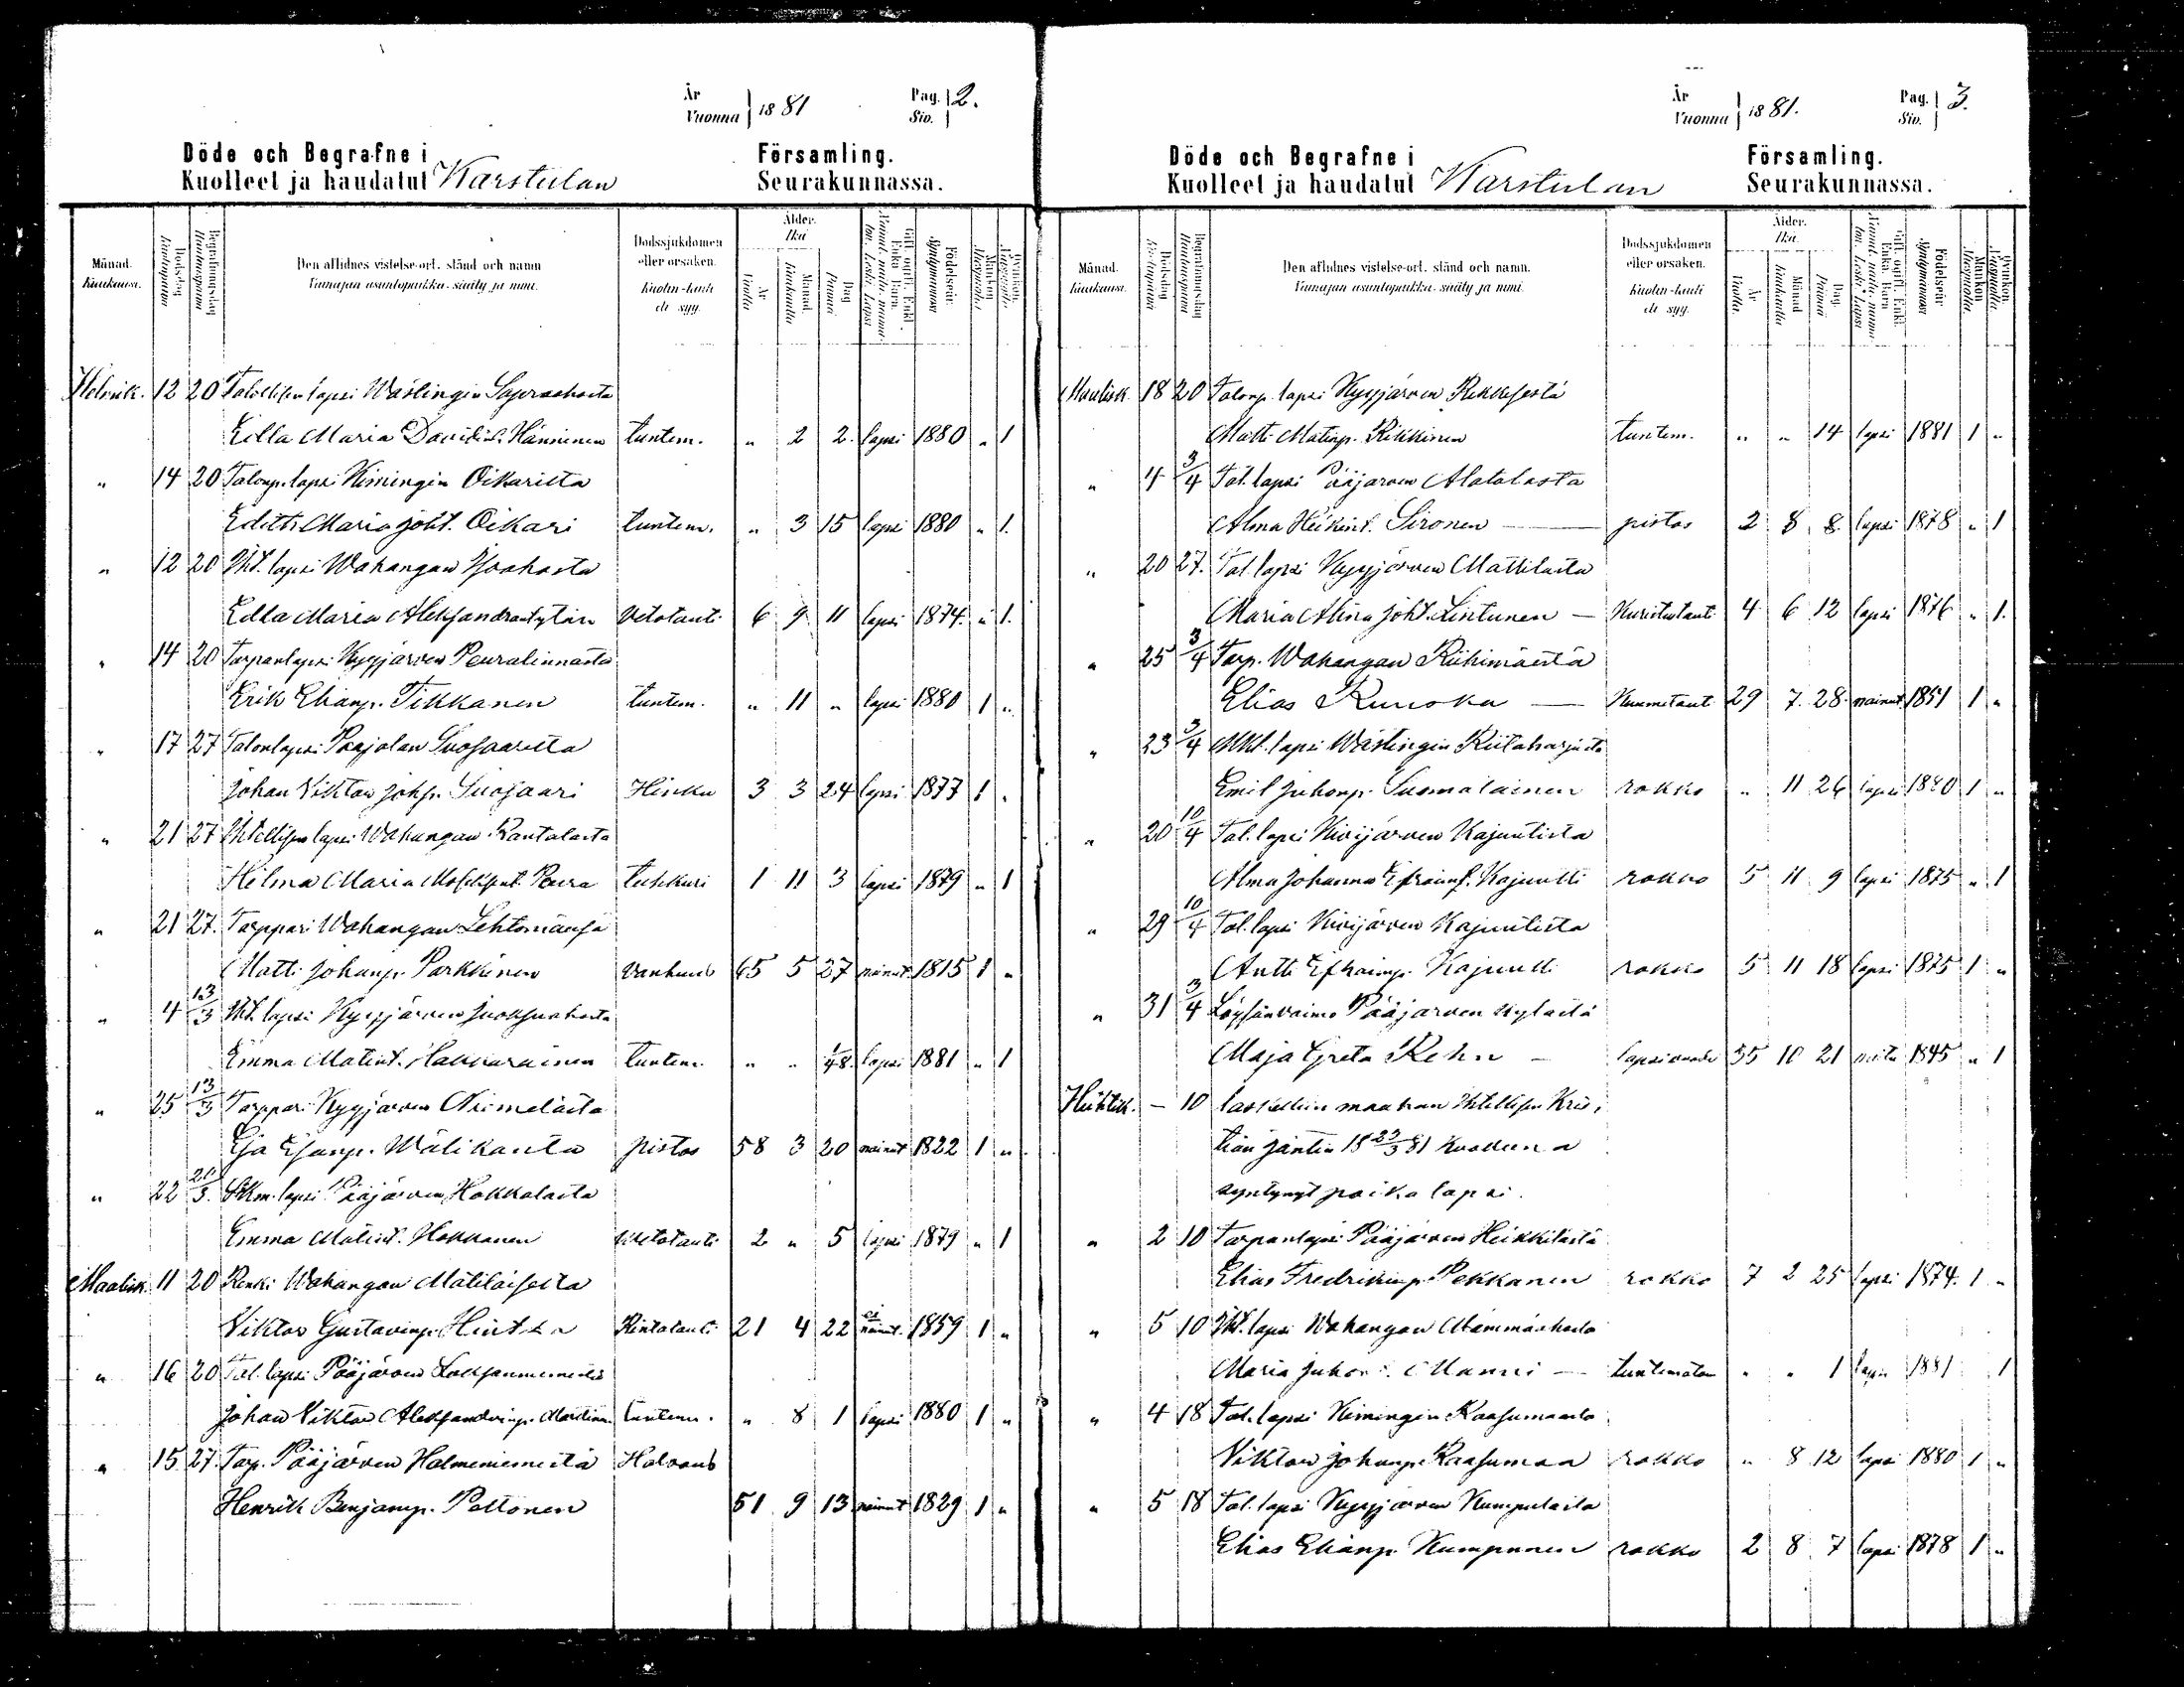 År
Vuonna 1881
Pag.
Siv. 2.
Döde och Begrafne i
Kuolleet ja haudatut Karstulan
Församling.
Seurakunnassa.
Månad. Kuukausi.
Dödsdag Kuolinpäivä
Begrafningsdag Hautauspäivä
Den aflidnes vistelse-ort, stånd och namn
Vainajan asuntopaikka, sääty ja nimi.
Dödssjukdomen eller orsaken.
Kuolin-tauti eli syy.
Ålder. Ikä
År Vuotta
Månad Kuukautta
Dag Päivää
Födelseår. Syntymävuosi
Mankön Miespuolia
Qvinkön. Vaimopuolia
Helmik. 12 20 Talollisen lapsi Wastingin
Edla Maria Davidint. Hänninen tuntem. " 2 2. lapsi 1880 " 1
" 14 20 Talonp. lapsi Kimingin Oikarista
Edith Maria Joht. Oikari tuntem. " 3 15 lapsi 1880 " 1.
" 12 20 Itk. lapsi Wahangan
Edla Maria Aleksandrantytär Vetotauti 6 9 11 lapsi 1874. " 1.
" 14 20 Torpanlapsi Kyyjärven Peuralinnasta
Erik Elianp. Tikkanen tuntem. " 11 " lapsi 1880 1 "
" 17 27 Talonlapsi Paajalan Suojaarista
Johan Viktor Johp. Suojaari Hinku 3 3 24 lapsi 1877 1 "
" 21 27 Itkellisen lapsi Wahangan Rantalasta
Hilma Maria Peura tuhkuri 1 11 3 lapsi 1879 " 1
" 21 27. Torppari Wahangan Lehtomäessä
Matti Johanp. Parkkinen vanhuus 65 5 27 nainut 1815 1 "
" 4 13/3 Itk. lapsi Kyyjärven Juoksuahosta
Emma Matint. Hakkarainen tuntem. " " lapsi 1881 " 1
" 25 13/3 Torppari Kyyjärven Niemelästä
Esa Esanp. Wälikanta pistos 58 3 20 nainut 1822 1 "
" 22 lapsi Pääjärven Hokkalasta
Emma Matint. Hokkanen Vetotauti 2 " 5 lapsi 1879 " 1
Maalisk. 11 20 Renki Wahangan Mätiläisestä
Viktor Gustavinp. Hintsa Rintatauti 21 4 22 ei nainut. 1859 1 "
" 16 20 Tal. lapsi Pääjärven
Johan Viktor Aleksandrinp. Martinen tuntem. " 8 1 lapsi 1880 1 "
" 15 27. Torp. Pääjärven Holmeniemestä Halvaus
Henrik Benjamp. Poltonen 51 9 13 nainut 1829 1 "
År
Vuonna 1881.
Pag.
Siv. 3.
Döde och Begrafne i
Kuolleet ja haudatut Karstulan
Församling.
Seurakunnassa.
Månad. Kuukausi.
Dödsdag Kuolinpäivä
Begrafningsdag Hautauspäivä
Den aflidnes vistelse-ort, stånd och namn.
Vainajan asuntopaikka, sääty ja nimi
Dödssjukdomen eller orsaken.
Kuolin-tauti eli syy.
Ålder. Ikä.
År Vuotta
Månad Kuukautta
Dag Päivää
Födelseår Syntymävuosi
Mankön Miespuolia
Qvinkön. Vaimopuolia
Maalisk. 18 20 Talonp. lapsi Kyyjärven
Matti Matinp. Rikkinen tuntem. " " 14 lapsi 1881 1 "
" 4 3/4 Tal. lapsi Pääjärven Alatalosta
Alma Heikint. Sironen — pistos 2 8 8 lapsi 1878 " 1
" 20 27. Tal. lapsi Kyyjärven Mattilasta
Maria Alina Joht. Lintunen — Kuristustauti 4 6 12 lapsi 1876 " 1.
" 25 3/4 Torp. Wahangan Riihimäestä
Elias Ruuska — Kuumetaut 29 7 28. nainut 1851 1 "
" 23 3/4 lapsi Wastingin Riitaharjusta
Emil Juhonp. Suomalainen rokko " 11 26 lapsi 1880 1 "
" 20 10/4 Tal. lapsi Kivijärven Kajuutista
Alma Johanna Efraimt. Kajuutti rokko 5 11 9 lapsi 1875 " 1
" 29 10/4 Tal. lapsi Kivijärven Kajuutista
Antti Efraimp. Kajuutti rokko 5 11 18 lapsi 1875 1 "
" 31 3/4 Löysänvaimo Pääjärven kylästä
Maja Greta Rehn — lapsivuode 35 10 21 1845 " 1
Huhtik. — 10 laskettiin maahan Itkellisen Kris-
tian Jäntin 18 23/3 81 kuolleena
syntynyt poikalapsi.
" 2 10 Torpanlapsi Pääjärven Heikkilästä
Elias Fredrikinp. Pekkanen rokko 7 2 25 lapsi 1874. 1 "
" 5 10 Itk. lapsi Wahangan Mämmänahosta
Maria Juhont. Manni — tuntematon " " 1 lapsi 1881 1
" 4 18 Tal. lapsi Kimingin Raasumaasta
Viktor Johanp. Raasumaa rokko " 8 12 lapsi 1880 1 "
" 5 18 Tal. lapsi Kyyjärven Kumpulasta
Elias Elianp. Kumpunen rokko 2 8 7 lapsi 1878 1 "